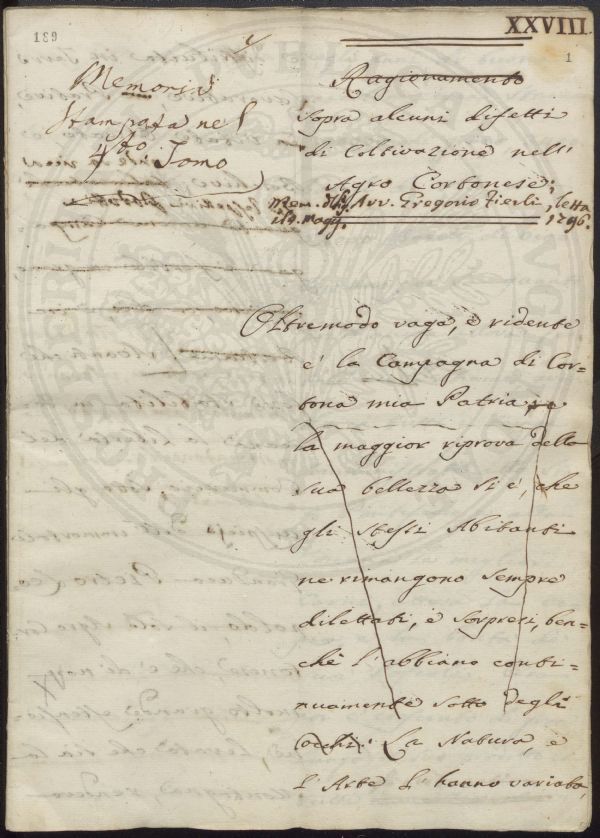 XXVIII.
189
1
Memoria
Stampata nel
4to Tomo
Ragionamento
sopra alcuni difetti
di Coltivazione nell'
Agro Cortonese;
Mem. dell' Avv. Gregorio Fierli, letta
il 4. Magg. 1796.
Oltremodo vaga, è ridente
é la Campagna di Cor-
tona mia Patria, e
la maggior riprova della
sua bellezza si é, che
gli stessi Abitanti
ne rimangono sempre
dilettati, è sorpresi, ben-
chè l'abbiano conti-
nuamente sotto degli
occhi. La Natura, è
l'Arte l'hanno variata,